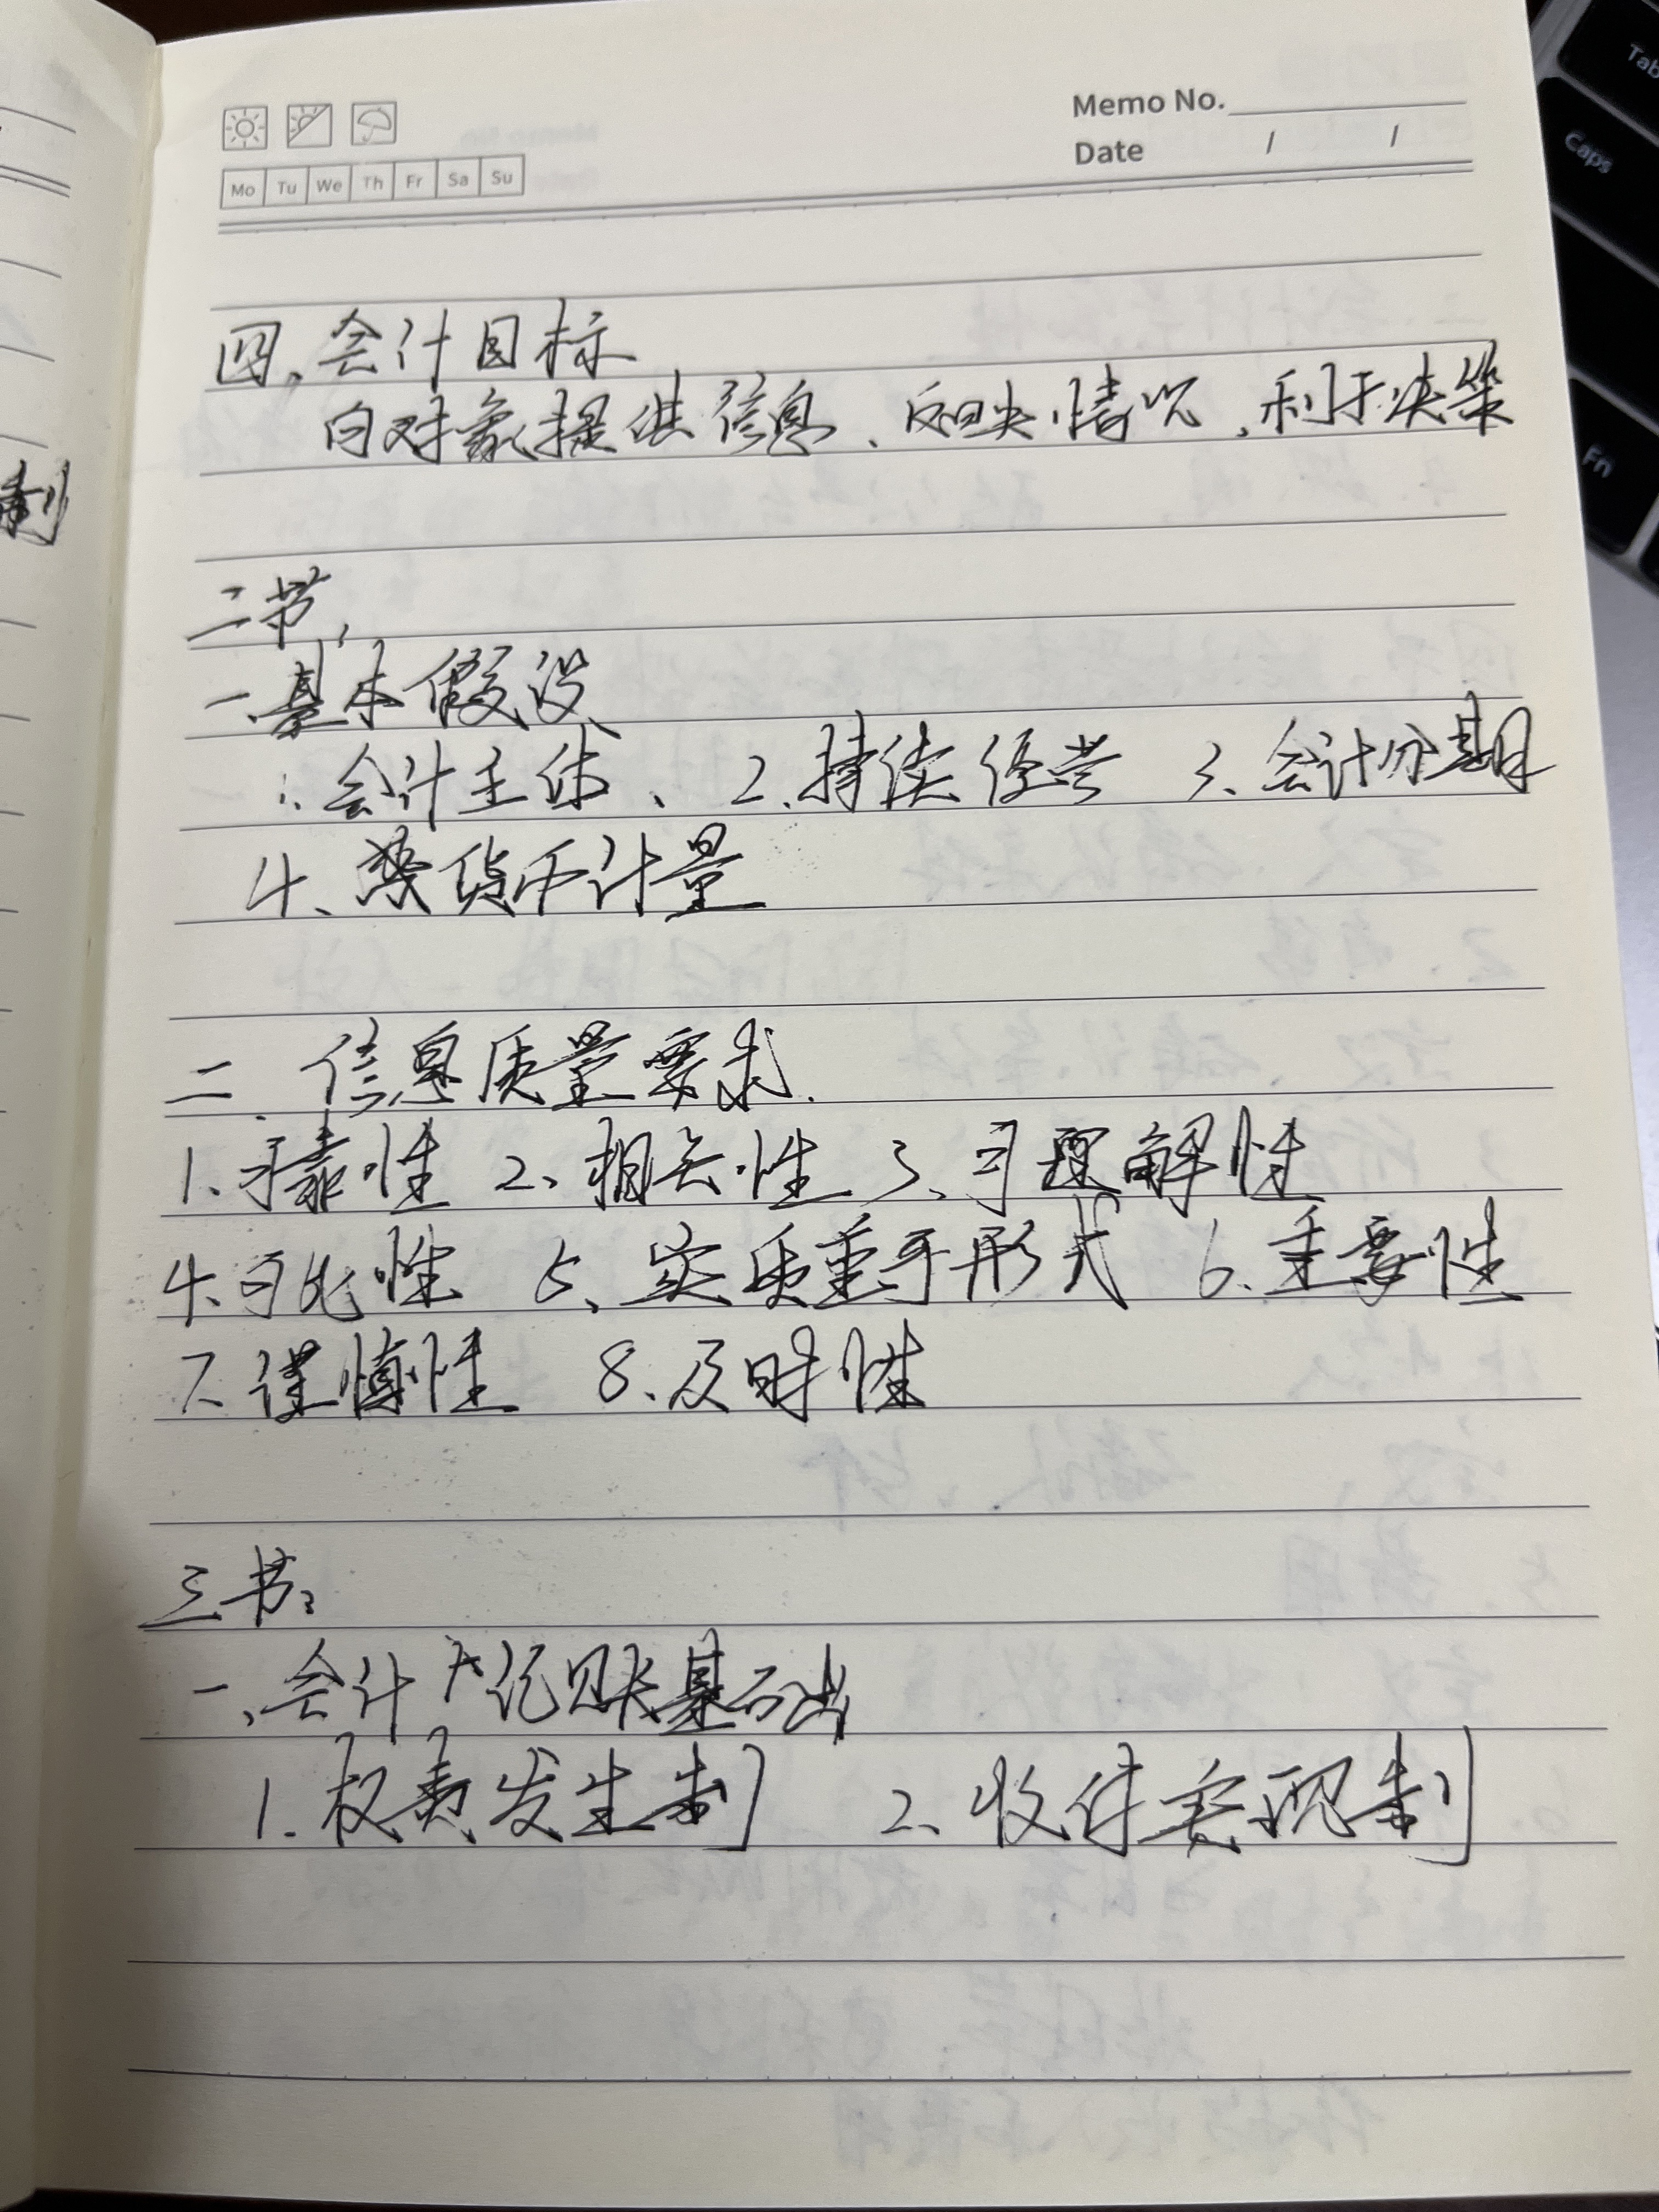 Memo No.
Date / /
Mo Tu We Th Fr Sa Su
四、会计目标
向对象提供信息、反映情况、利于决策
二节、
一.基本假设
1.会计主体、2.持续经营 3、会计分期
4、货币计量
二、信息质量要求.
1.可靠性 2、相关性 3、可理解性
4.可比性 5、实质重于形式 6.重要性
7.谨慎性 8、及时性
三节:
一、会计 记账基础
1.权责发生制 2、收付实现制
制
Tab
Caps
Fn